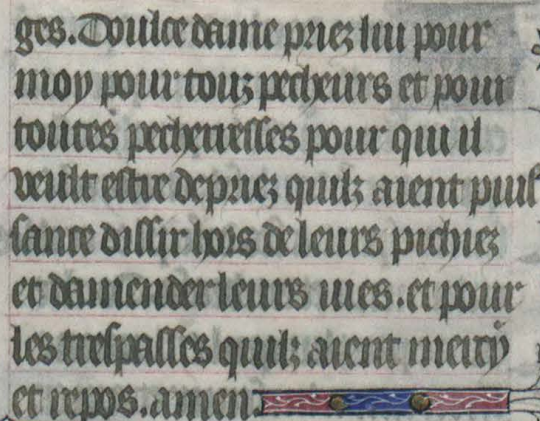 ges. Doulce dame priez lui pour
moy pour touz pecheurs et pour
toutes pecherresses pour qui il
veult estre depriez quilz aient puis
sance dissir hors de leurs pichiez
et damender leurs uies. et pour
les trespasses quilz aient mercy
et repos. amen.